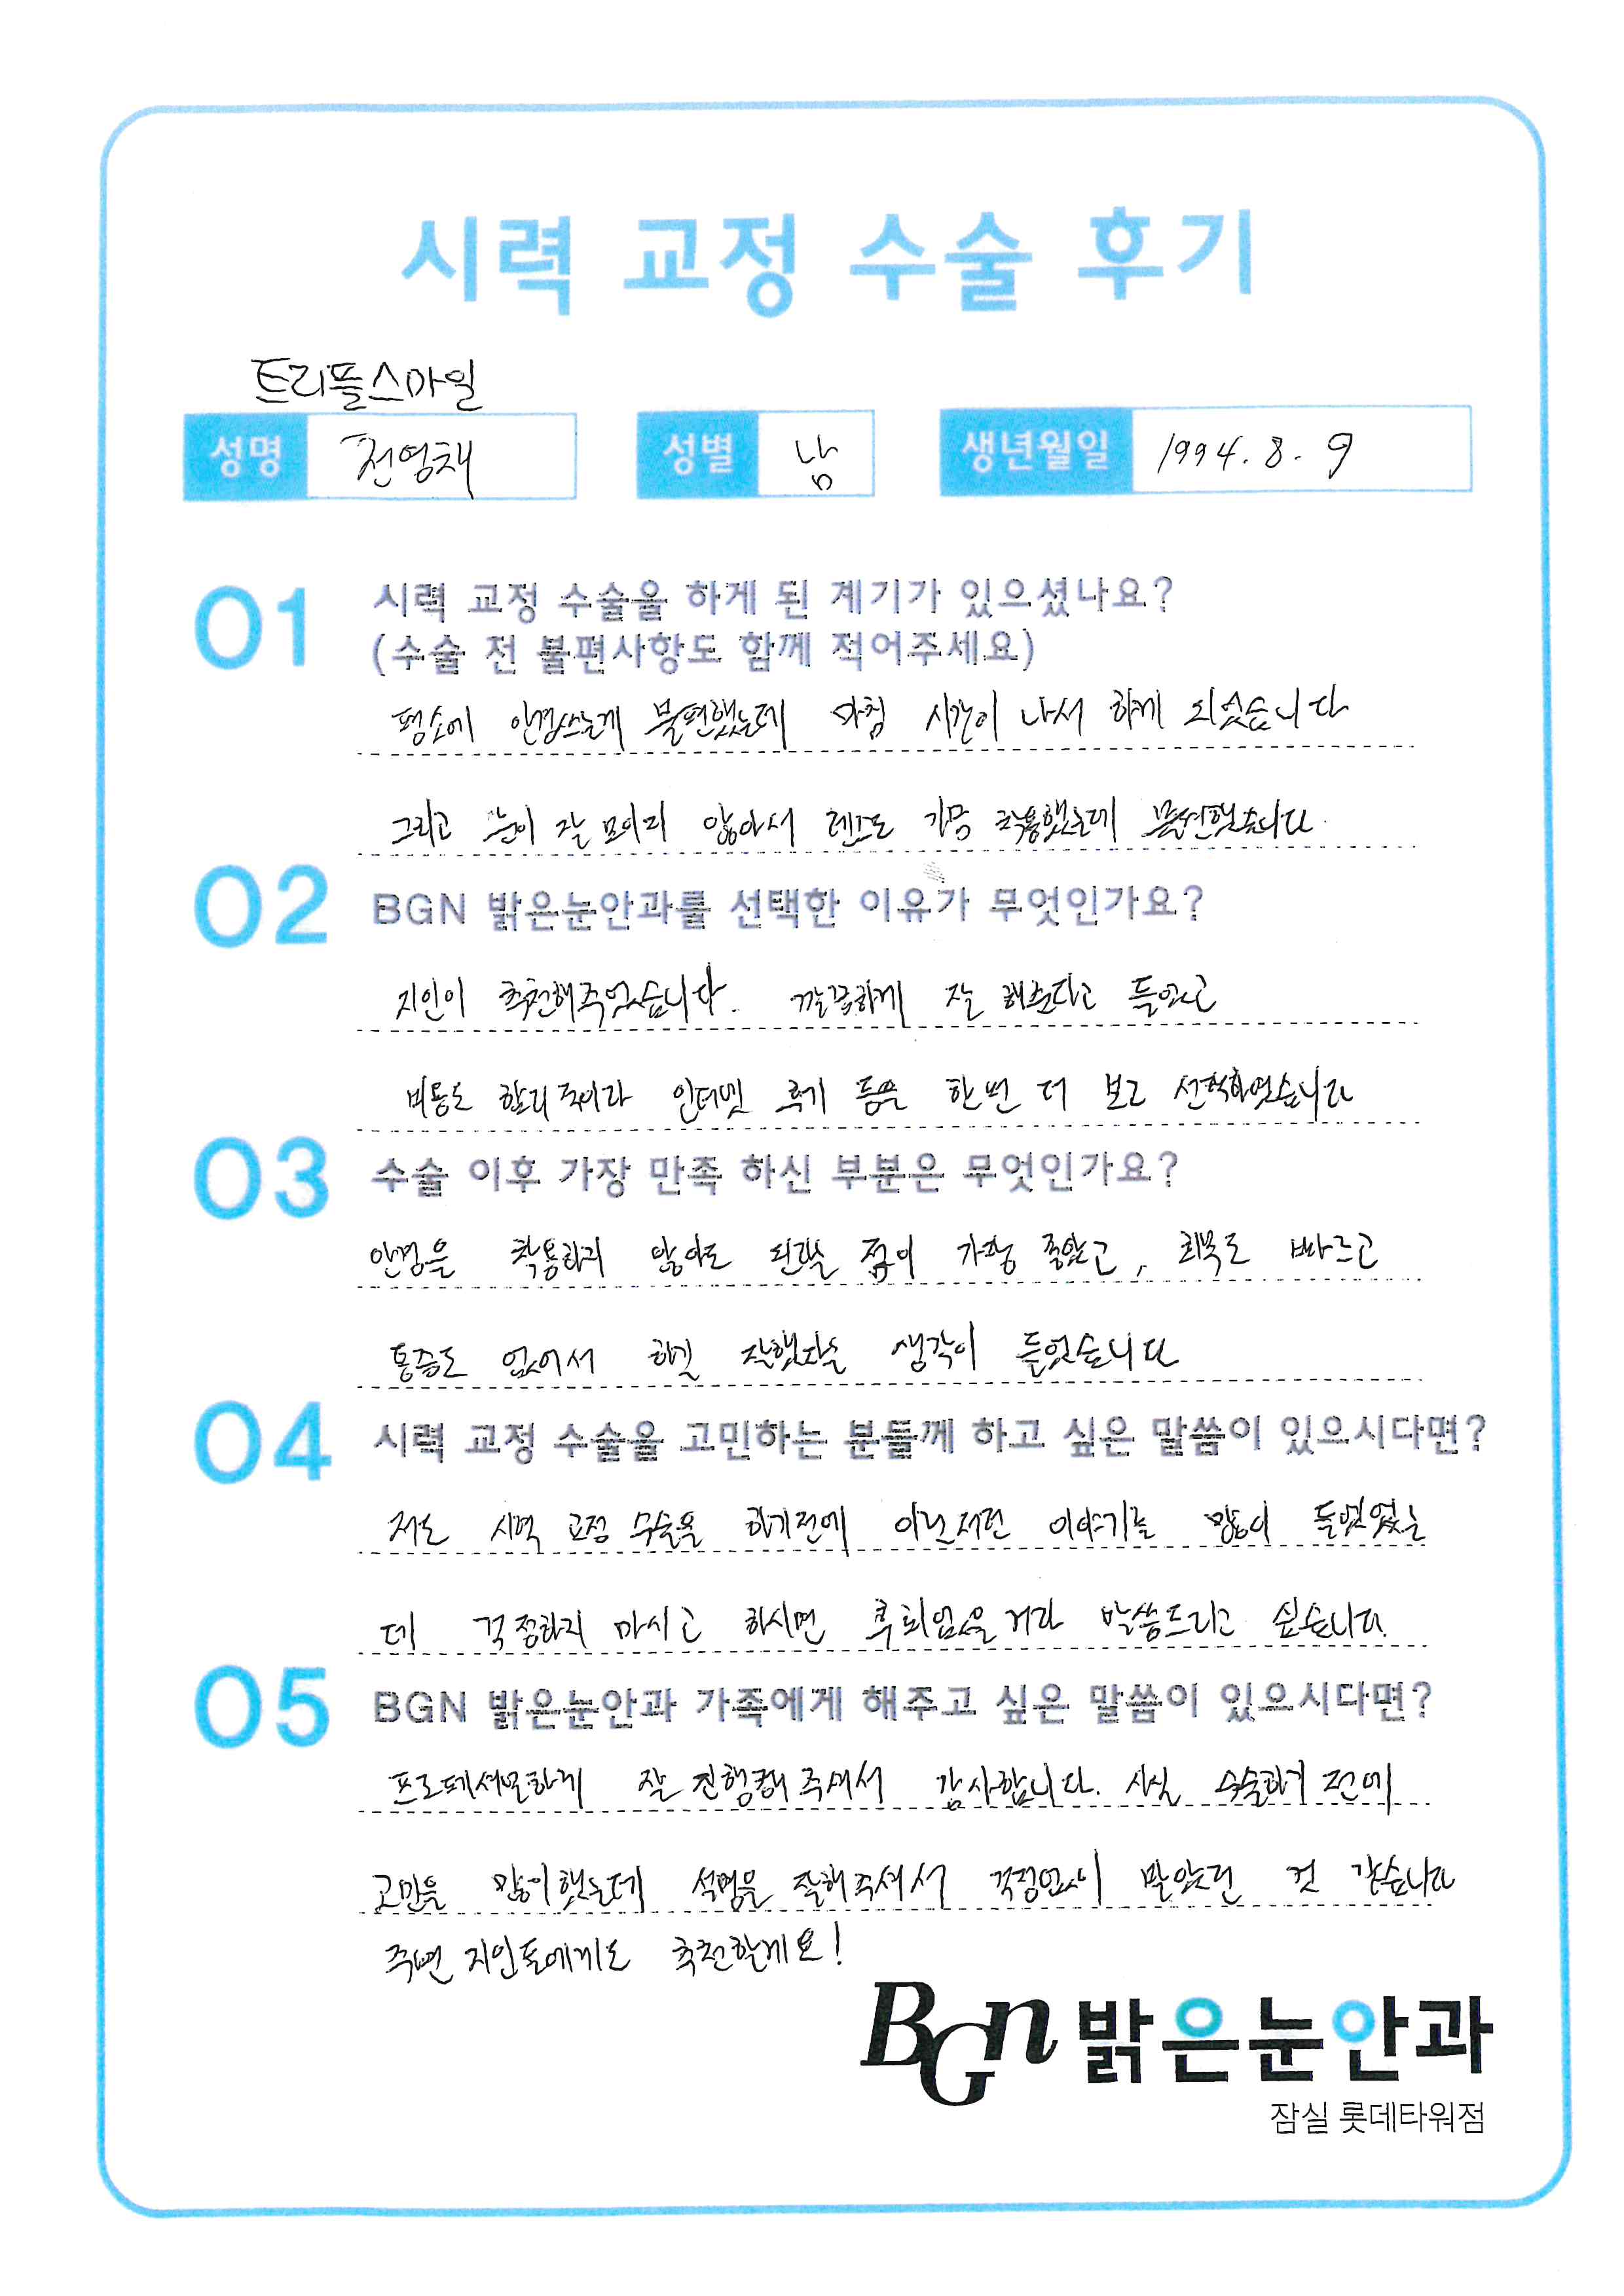 시력 교정 수술 후기
트리플스마일
성명 전영채 성별 남 생년월일 1994. 8. 9
01 시력 교정 수술을 하게 된 계기가 있으셨나요?
(수술 전 불편사항도 함께 적어주세요)
평소에 안경쓰는게 불편했는데 마침 시간이 나서 하게 되었습니다
그리고 눈이 잘 보이지 않아서 렌즈도 가끔 착용했는데 불편했습니다.
02 BGN 밝은눈안과를 선택한 이유가 무엇인가요?
지인이 추천해주었습니다. 깔끔하게 잘 해준다고 들었고
비용도 합리적이라 인터넷 후기 등을 한번 더 보고 선택하였습니다
03 수술 이후 가장 만족 하신 부분은 무엇인가요?
안경을 착용하지 않아도 된다는 점이 가장 좋았고, 회복도 빠르고
통증도 없어서 하길 잘했다는 생각이 들었습니다
04 시력 교정 수술을 고민하는 분들께 하고 싶은 말씀이 있으시다면?
저도 시력 교정 수술을 하기전에 이런저런 이야기를 많이 들었었는
데 걱정하지 마시고 하시면 후회없을거라 말씀드리고 싶습니다.
05 BGN 밝은눈안과 가족에게 해주고 싶은 말씀이 있으시다면?
프로페셔널하게 잘 진행해 주셔서 감사합니다. 사실 수술하기 전에
고민을 많이했는데 설명을 잘해주셔서 걱정없이 받았던 것 같습니다
주변 지인들에게도 추천할게요!
BGn 밝은눈안과
잠실 롯데타워점